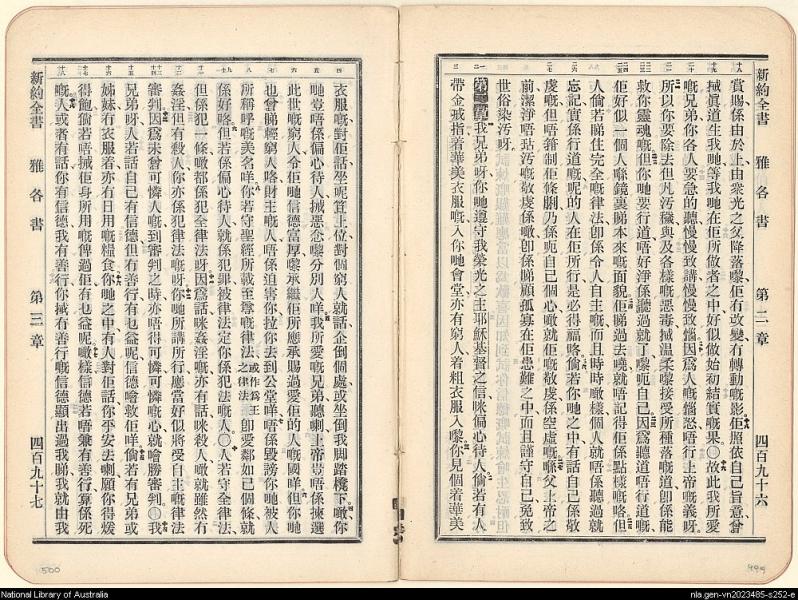 新約全書 雅各書 第二章 四百九十六
賞賜係由於上由衆光之父降落嚟佢冇改變冇轉動嘅影佢照依自己旨意曾
㨢眞道生我哋等我哋在佢所做者之中好似做始初結實嘅果〇故此我所愛
嘅兄弟你各人要急的聽慢慢致講慢慢致惱因爲人嘅惱怒唔行上帝嘅義呀
所以你要除去但凡汚穢與及各樣嘅惡毒㨢温柔嚟接受所種落嘅道卽係能
救你靈魂嘅但你哋要行道唔好淨係聽過就了嚟呃自己因爲聽道唔行道嘅
佢好似一個人喺鏡裏睇本來嘅面貌佢睇過去嘵就唔記得佢係點樣嘅咯但
人倘若睇住完全嘅律法卽係令人自主嘅而且時時噉樣個人就唔係聽過就
忘記實係行道嘅呢的人在佢所行是必得福咯倘若你哋之中有話自己係敬
虔嘅但唔箝制佢條脷乃係呃自己個心噉就佢嘅敬虔係空虛嘅喺父上帝之
前潔淨唔玷汚嘅敬虔係噉卽係睇顧孤寡在佢患難之中而且謹守自己免致
世俗染汚呀
第二章我兄弟呀你哋遵守我榮光之主耶穌基督之信咪偏心待人倘若有人
帶金戒指着華美衣服嘅入你哋會堂亦有窮人着粗衣服入嚟你見個着華美
衣服嘅對佢話坐呢笪上位對個窮人就話企倒個處或坐倒我脚踏櫈下噉你
哋豈唔係偏心待人㨢惡念嚟分別人咩我所愛嘅兄弟聽喇上帝豈唔係揀選
此世嘅窮人令佢哋信德富厚嚟承繼佢所應承賜過愛佢的人嘅國咩但你哋
也曾睇輕窮人咯財主人唔係迫害你拉你去到公堂咩唔係毁謗你哋被人
所稱呼嘅美名咩你若守聖經所載至尊嘅律法或作爲王之律法卽愛鄰如己個條就
係好咯但若係偏心待人就係犯罪被律法定你係犯法嘅人〇人若守全律法
但係犯一條噉都係犯全律法呀因爲話咪姦淫嘅亦有話咪殺人噉就雖然冇
姦淫但有殺人你亦係犯律法嘅呀你哋所講所行應當好似將受自主嘅律法
審判因爲未曾可憐人嘅到審判之時亦唔得可憐可憐嘅心就噲勝審判〇我
兄弟呀人若話自己有信德但冇善行有乜益呢信德噲救佢咩倘若有兄弟或
姊妹冇衣服着亦冇日用嘅糧食你哋之中有人對佢話你平安去喇願你得煖
得飽倘若唔㨢佢身所用嘅俾過佢有乜益呢噉樣信德若唔兼有善行算係死
嘅人或者有話你有信德我有善行你㨢冇善行嘅信德顯出過我睇我就由我
新約全書 雅各書 第二章 四百九十七
500
499
National Library of Australia
nla.gen-vn2023485-s252-e